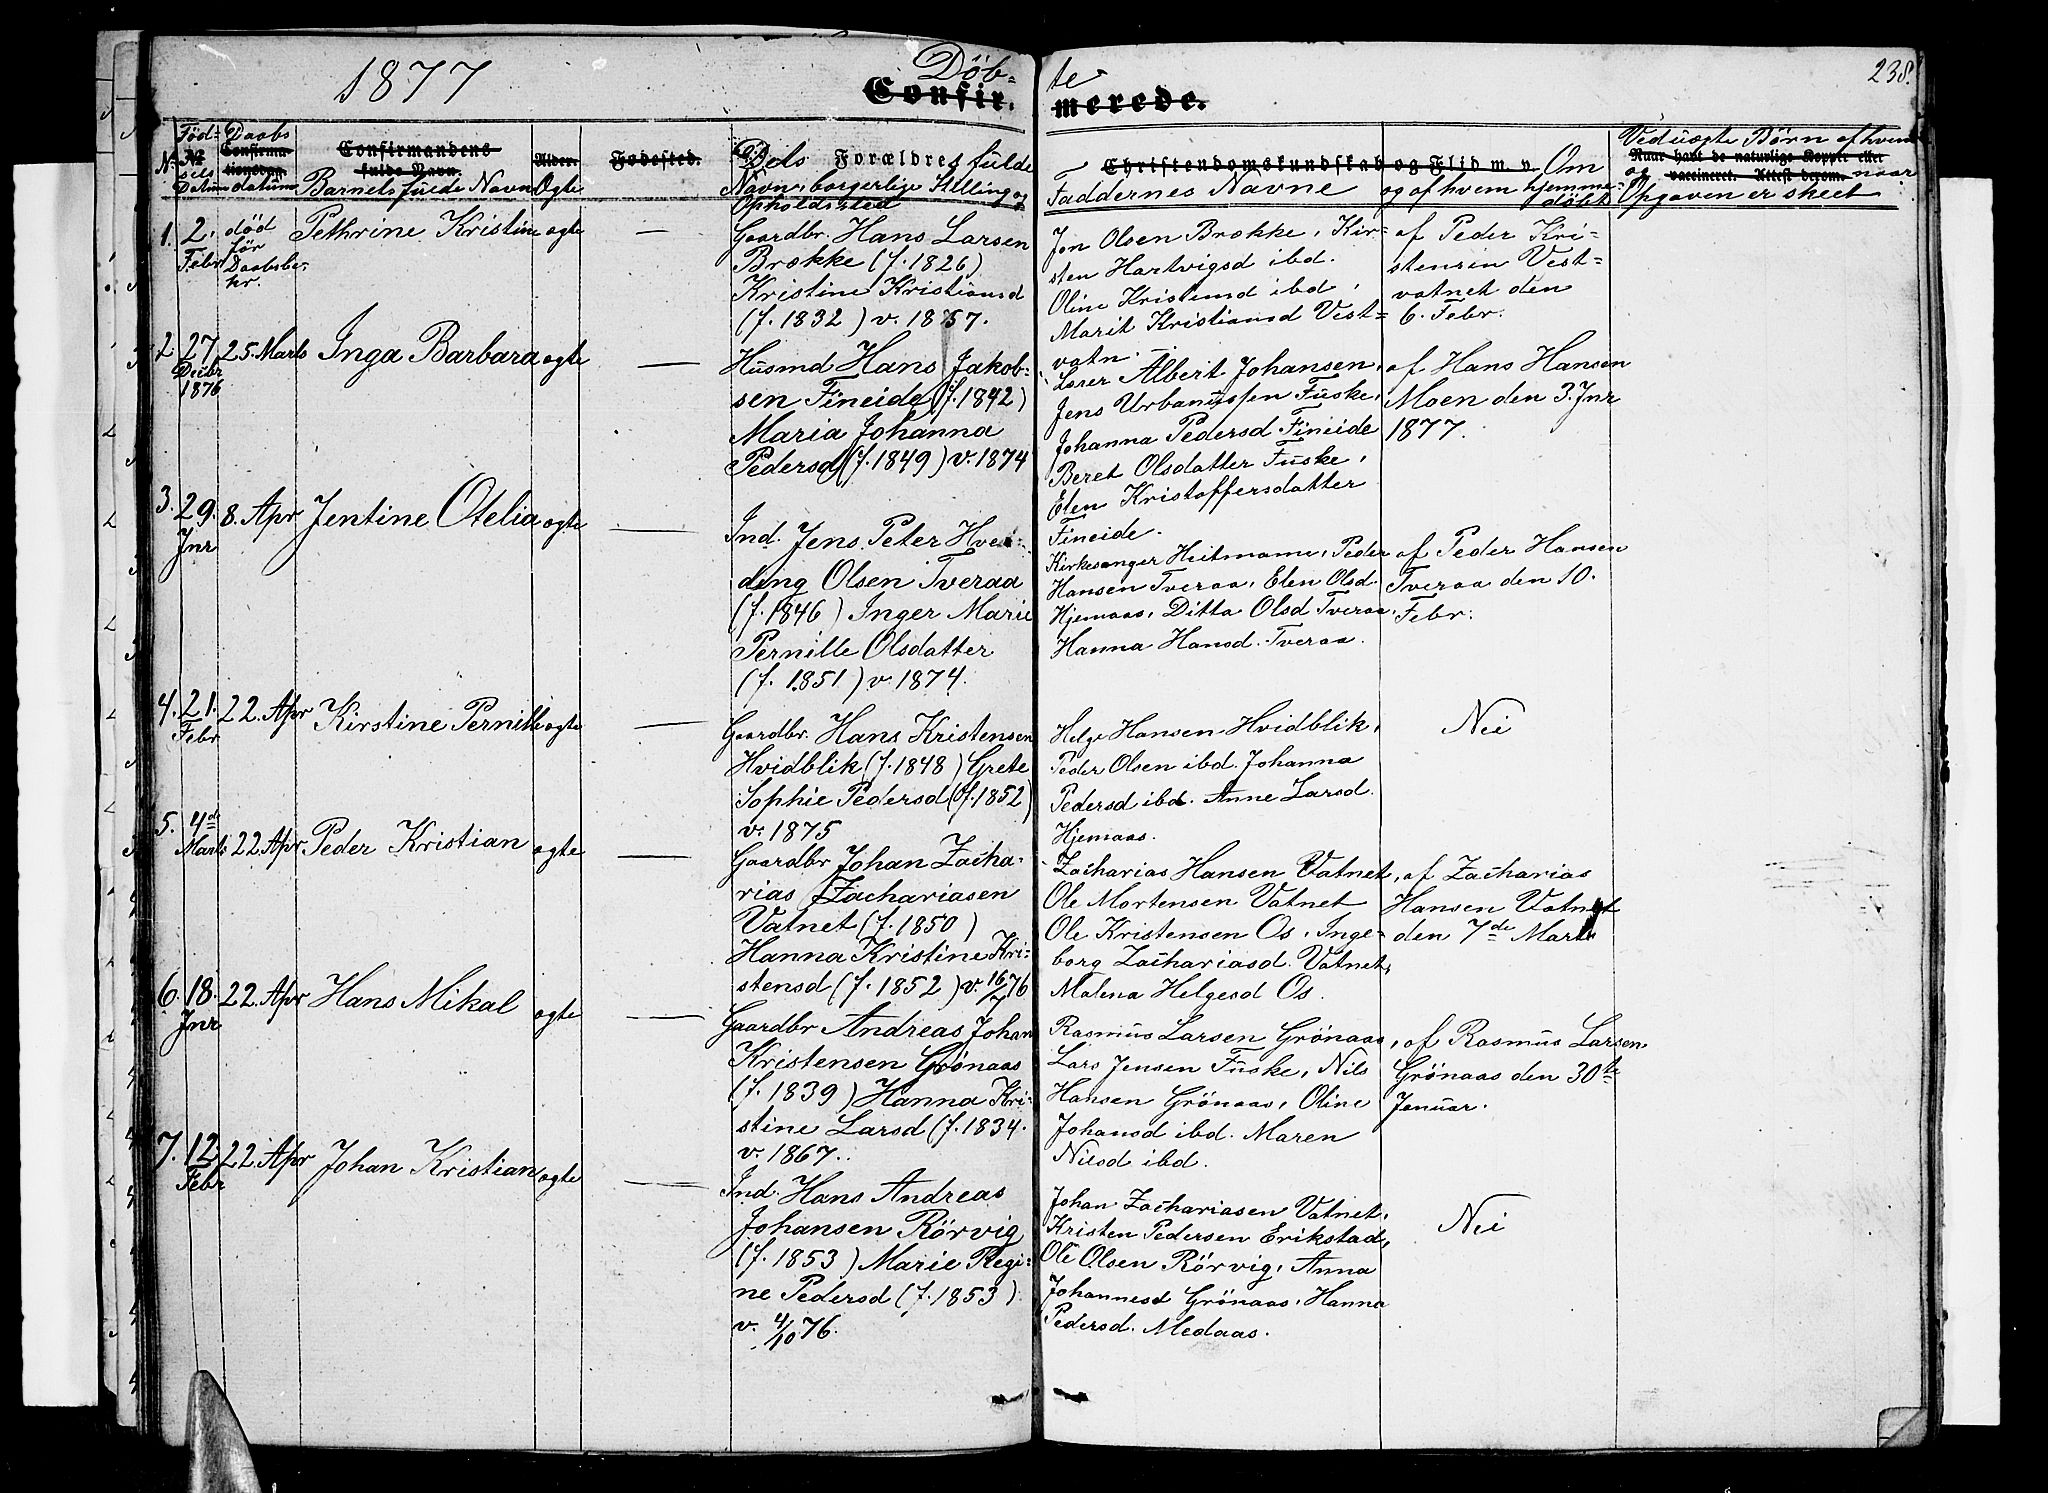 1877
Döb=
te
238.
Confir. merede.
No.
Föd=
sels
Datum
Daabs
Confirma-
tionsdag.
datum
Confirmandens
fulde Navn.
Barnets fulde Navn
Alder.
Ægte
Fødested.
Dets Forældres fulde
Navn, borgerlige Stilling og
Opholdssted
Christendomskundskab og Flid m. v.
Faddernes Navne
Om
og af hvem hjemme=
döbt
Ved uægte Börn af hvem
Naar havt de naturlige Kopper eller
og vaccineret. Attest derom. naar
Opgaven er skeet
1.
2.
Febr
död
för
Daabsbe=
kr.
Pethrine Kristine
ægte
—
Gaardbr. Hans Larsen
Brække (f. 1826)
Kristine Kristiansd
(f. 1832) v. 1857.
Jon Olsen Brække, Kir=
sten Hartvigsd ibd.
Oline Kristensd ibd,
Marit Kristiansd Vest=
vatn.
af Peder Kri=
stensen Vest=
vatnet den
6. Febr.
2
27
Decbr
1876
25. Marts
Inga Barbara
ægte
—
Husmd Hans Jakob=
sen Fineide (f. 1842)
Maria Johanna
Pedersd (f. 1849) v. 1874
Lærer Albert Johansen,
Jens Urbanussen Fuske,
Johanna Pedersd Fineide
Beret Olsdatter Fuske,
Elen Kristoffersdatter
Fineide.
af Hans Hansen
Moen den 3. Jnr
1877.
3.
29.
Jnr
8. Apr
Jentine Otelia
ægte
—
Ind. Jens Peter Hvei=
ding Olsen Tveraa
(f. 1846) Inger Marie
Pernille Olsdatter
(f. 1851) v. 1874.
Kirkesanger Heitmann, Peder
Hansen Tveraa, Elen Olsd.
Hjemaas, Ditta Olsd Tveraa,
Hanna Hansd. Tveraa.
af Peder Hansen
Tveraa den 10.
Febr.
4.
21.
Febr
22. Apr
Kirstine Pernille
ægte
—
Gaardbr. Hans Kristensen
Hvidblik (f. 1848) Grete
Sophie Pedersd (f. 1852)
v. 1875
Helge Hansen Hvidblik,
Peder Olsen ibd. Johanna
Pedersd ibd. Anne Larsd.
Hjemaas.
Nei
5.
4de
Marts
22. Apr
Peder Kristian
ægte
—
Gaardbr Johan Zacha=
rias Zachariasen
Vatnet (f. 1850)
Hanna Kristine Kri=
stensd (f. 1852) v. 16/7 76
Zacharias Hansen Vatnet,
Ole Mortensen Vatnet
Ole Kristensen Os, Inge=
borg Zachariasd. Vatnet,
Malena Helgesd Os.
af Zacharias
Hansen Vatnet
den 7de Marts
6.
18.
Jnr
22. Apr
Hans Mikal
ægte
—
Gaardbr Andreas Johan
Kristensen Grönaas
(f. 1839) Hanna Kri=
stine Larsd (f. 1834.
v. 1867.
Rasmus Larsen Grönaas,
Lars Jensen Fuske, Nils
Hansen Grönaas, Oline
Johansd ibd. Maren
Nilsd ibd.
af Rasmus Larsen
Grönaas den 30te
Januar.
7.
12
Febr
22. Apr
Johan Kristian
ægte
—
Ind. Hans Andreas
Johansen Rörvig
(f. 1853) Marie Regi=
ne Pedersd (f. 1853)
v. 4/10 76.
Johan Zachariasen Vatnet,
Kristen Pedersen Erikstad,
Ole Olsen Rörvig, Anna
Johannesd Grönaas, Hanna
Pedersd. Medaas.
Nei